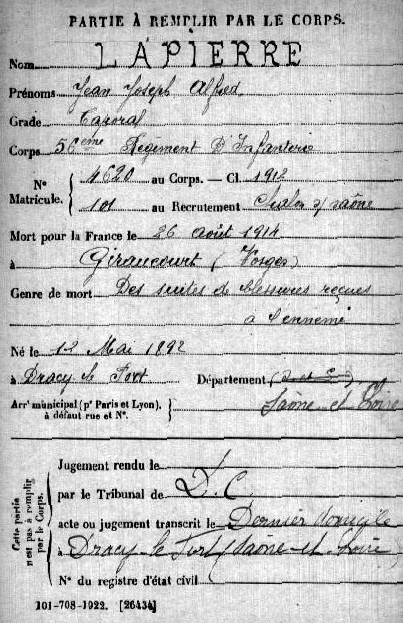 PARTIE À REMPLIR PAR LE CORPS.
Nom LAPIERRE
Prénoms Jean Joseph Alfred
Grade Caporal
Corps 56eme Régiment D'Infanterie
N° Matricule. { 4620 au Corps. — Cl. 1912
101 au Recrutement Chalon s/ Saône
Mort pour la France le 26 août 1914
à Girancourt (Vosges)
Genre de mort Des suites de blessures reçues
à l'ennemi
Né le 12 Mai 1892
à Dracy le Fort Département (S et L)
Saône et Loire
Arrt municipal (pr Paris et Lyon), à défaut rue et N°. }
Cette partie n'est pas à remplir par le Corps.
Jugement rendu le
par le Tribunal de D.C
acte ou jugement transcrit le Dernier domicile
à Dracy-le Fort (Saône-et-Loire)
N° du registre d'état civil
101-708-1922. [26434]